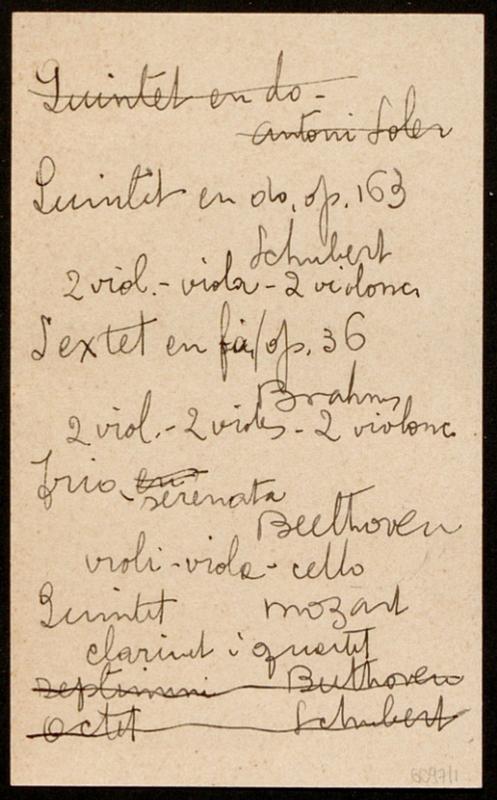 Quintet en do -
Antoni Soler
Quintet en do, op. 163
Schubert
2 viol. - viola - 2 violonc.
Sextet en fa, op. 36
Brahms
2 viol. - 2 violes - 2 violonc.
Trio - en
serenata
Beethoven
violí - viola - cello
Quintet mozart
clarinet i quartet
septimini Beethoven
octet Schubert
6697/1